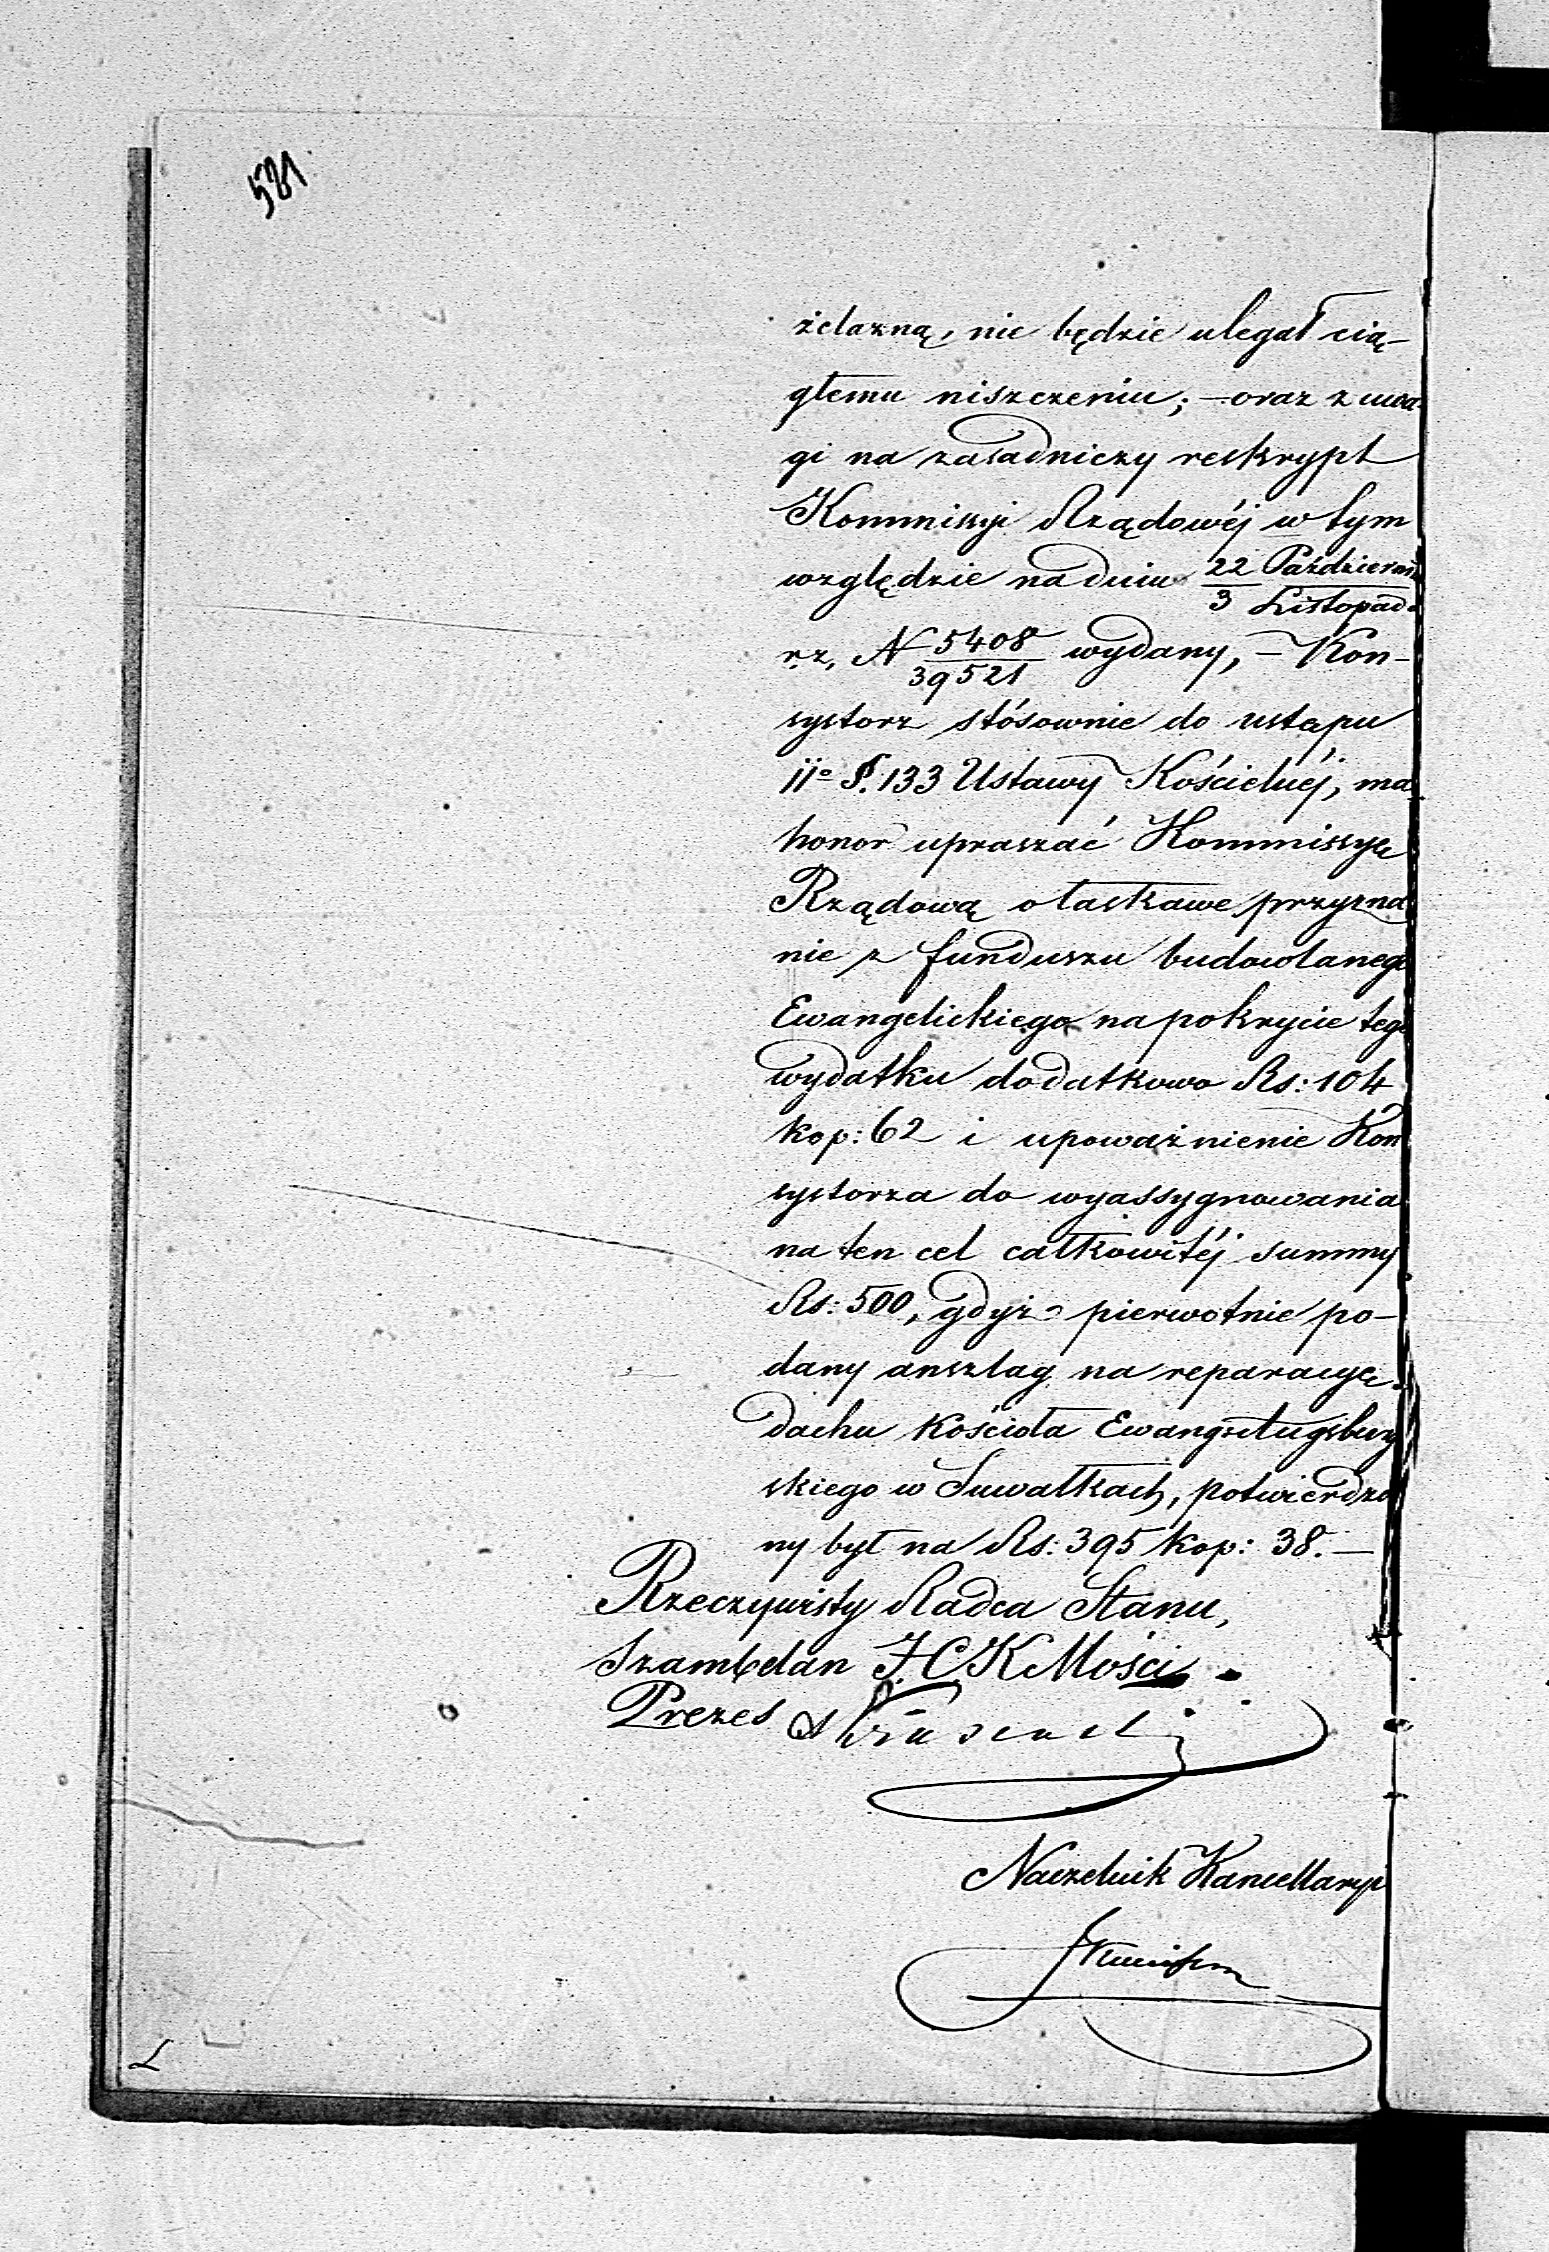 581
żelazną, nie będzie ulegał cią-
głemu niszczeniu; – oraz z uwa-
gi na zasadniczy reskrypt
Kommissyi Rządowéj w tym
względzie na dniu 22 Październ / 3 Listopad.
r.z. N 5408 / 39521 wydany, – Kon-
systorz stósownie do ustępu
II° §. 133 Ustawy Kościelnéj, ma
honor upraszać Kommissyę
Rządową o łaskawe przyzna
nie z funduszu budowlanego
Ewangelickiego na pokrycie tego
wydatku dodatkowo Rs: 104
kop: 62 i upoważnienie Kon
systorza do wyassygnowania
na ten cel całkowitéj summy
Rs: 500, gdyż pierwotnie po-
dany anszlag na reparacyę
dachu Kościoła Ewang: Augsbur
skiego w Suwałkach, potwierdzo
ny był na Rs: 395 kop: 38. –
Rzeczywisty Radca Stanu,
Szambelan J. C. K Mości
Prezes
Naczelnik Kancellaryi